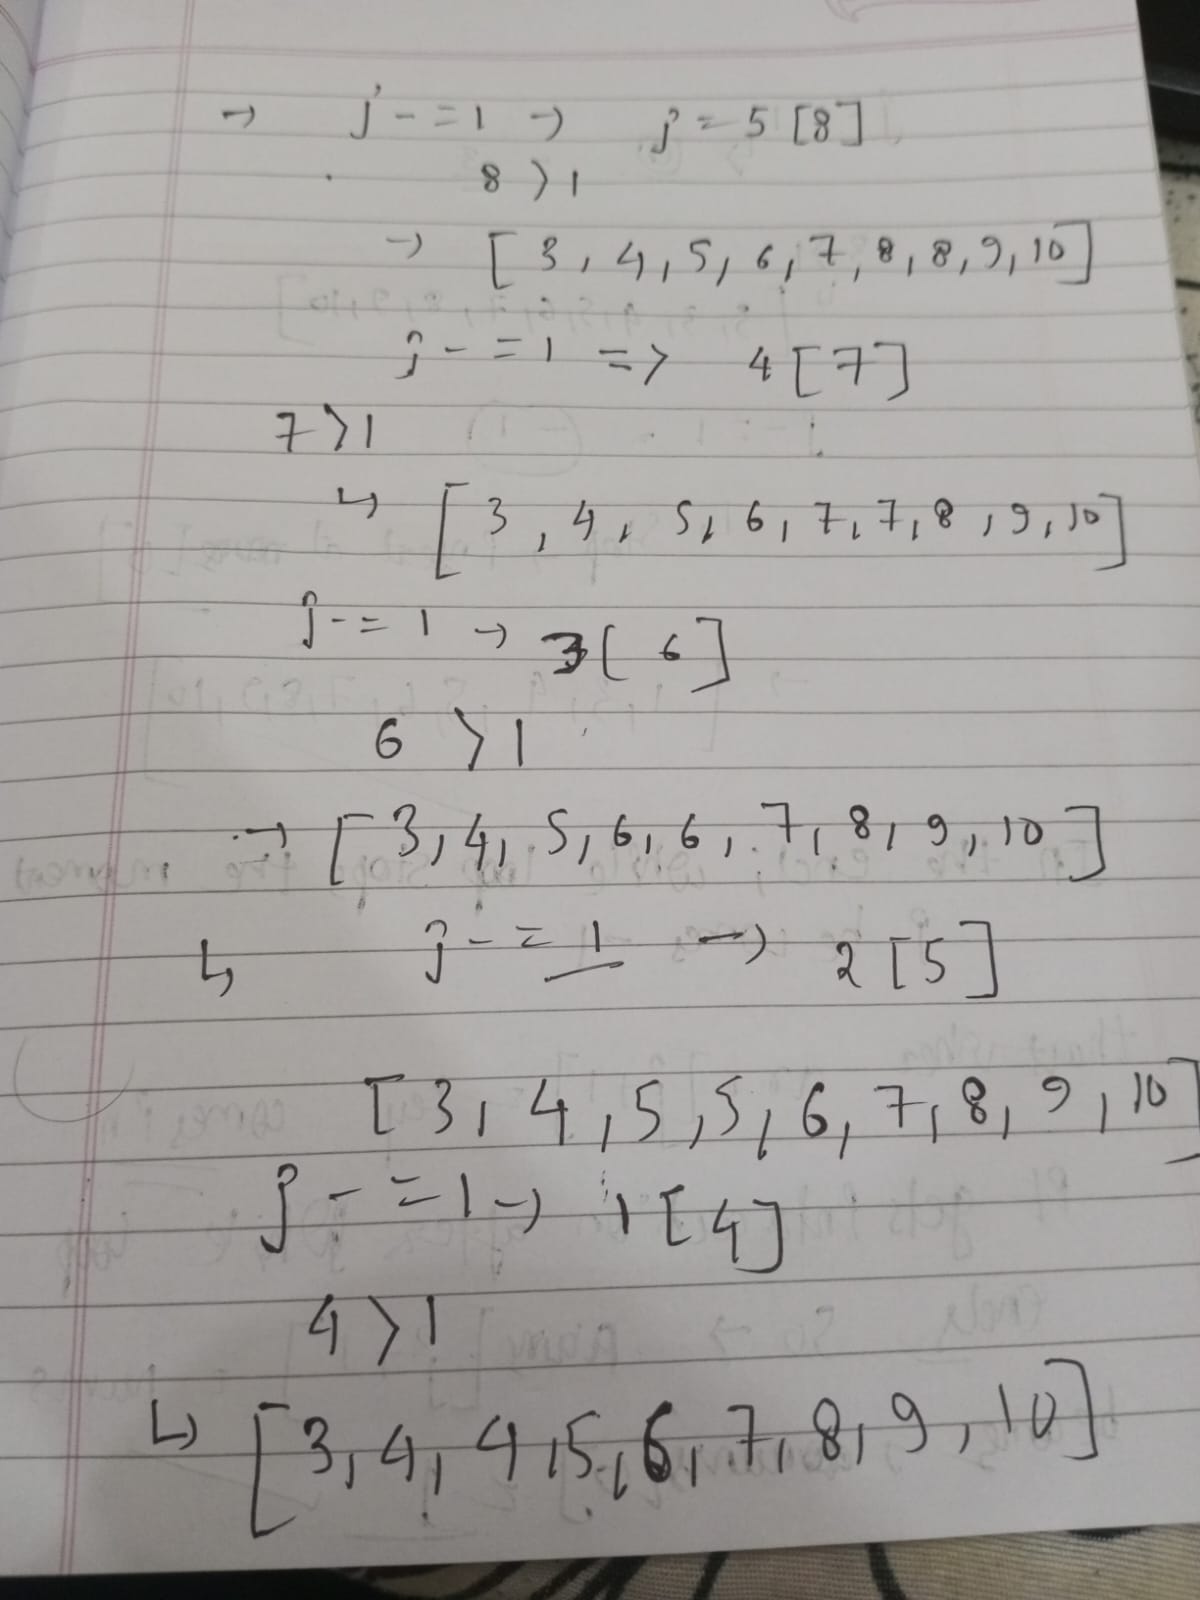 → j -= 1 → j = 5 [8]
8 > 1
→ [ 3, 4, 5, 6, 7, 8, 8, 9, 10 ]
j -= 1 => 4 [7]
7 > 1
↳ [ 3, 4, 5, 6, 7, 7, 8, 9, 10 ]
j -= 1 → 3 [ 6 ]
6 > 1
→ [ 3, 4, 5, 6, 6, 7, 8, 9, 10 ]
↳ j -= 1 → 2 [5]
[ 3, 4, 5, 5, 6, 7, 8, 9, 10 ]
j -= 1 → 1 [4]
4 > 1
↳ [ 3, 4, 4, 5, 6, 7, 8, 9, 10 ]